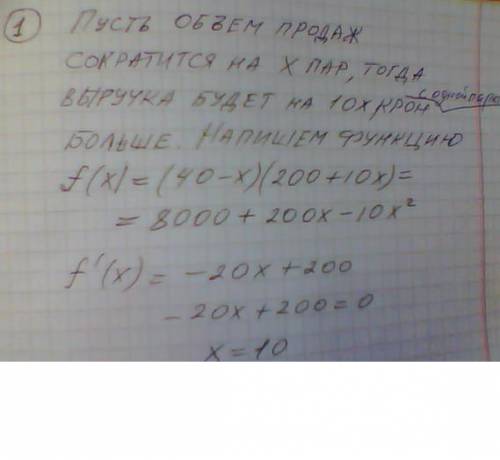 1 Пусть объем продаж
сократится на x пар, тогда
выручка будет на 10x крон с одной пары
больше. Напишем функцию
f(x) = (40-x)(200+10x) =
= 8000 + 200x - 10x²
f'(x) = -20x + 200
-20x + 200 = 0
x = 10